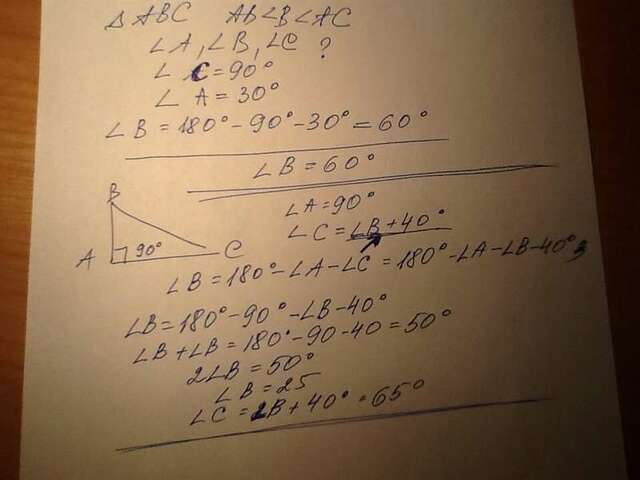 Δ ABC AB<B<AC
∠A, ∠B, ∠C ?
∠ C = 90°
∠ A = 30°
∠B = 180° - 90° - 30° = 60°
∠B = 60°
∠A = 90°
∠C = ∠B + 40°
B
A 90° C
∠B = 180° - ∠A - ∠C = 180° - ∠A - ∠B - 40°
∠B = 180° - 90° - ∠B - 40°
∠B + ∠B = 180° - 90 - 40 = 50°
2∠B = 50°
∠B = 25
∠C = ∠B + 40° = 65°